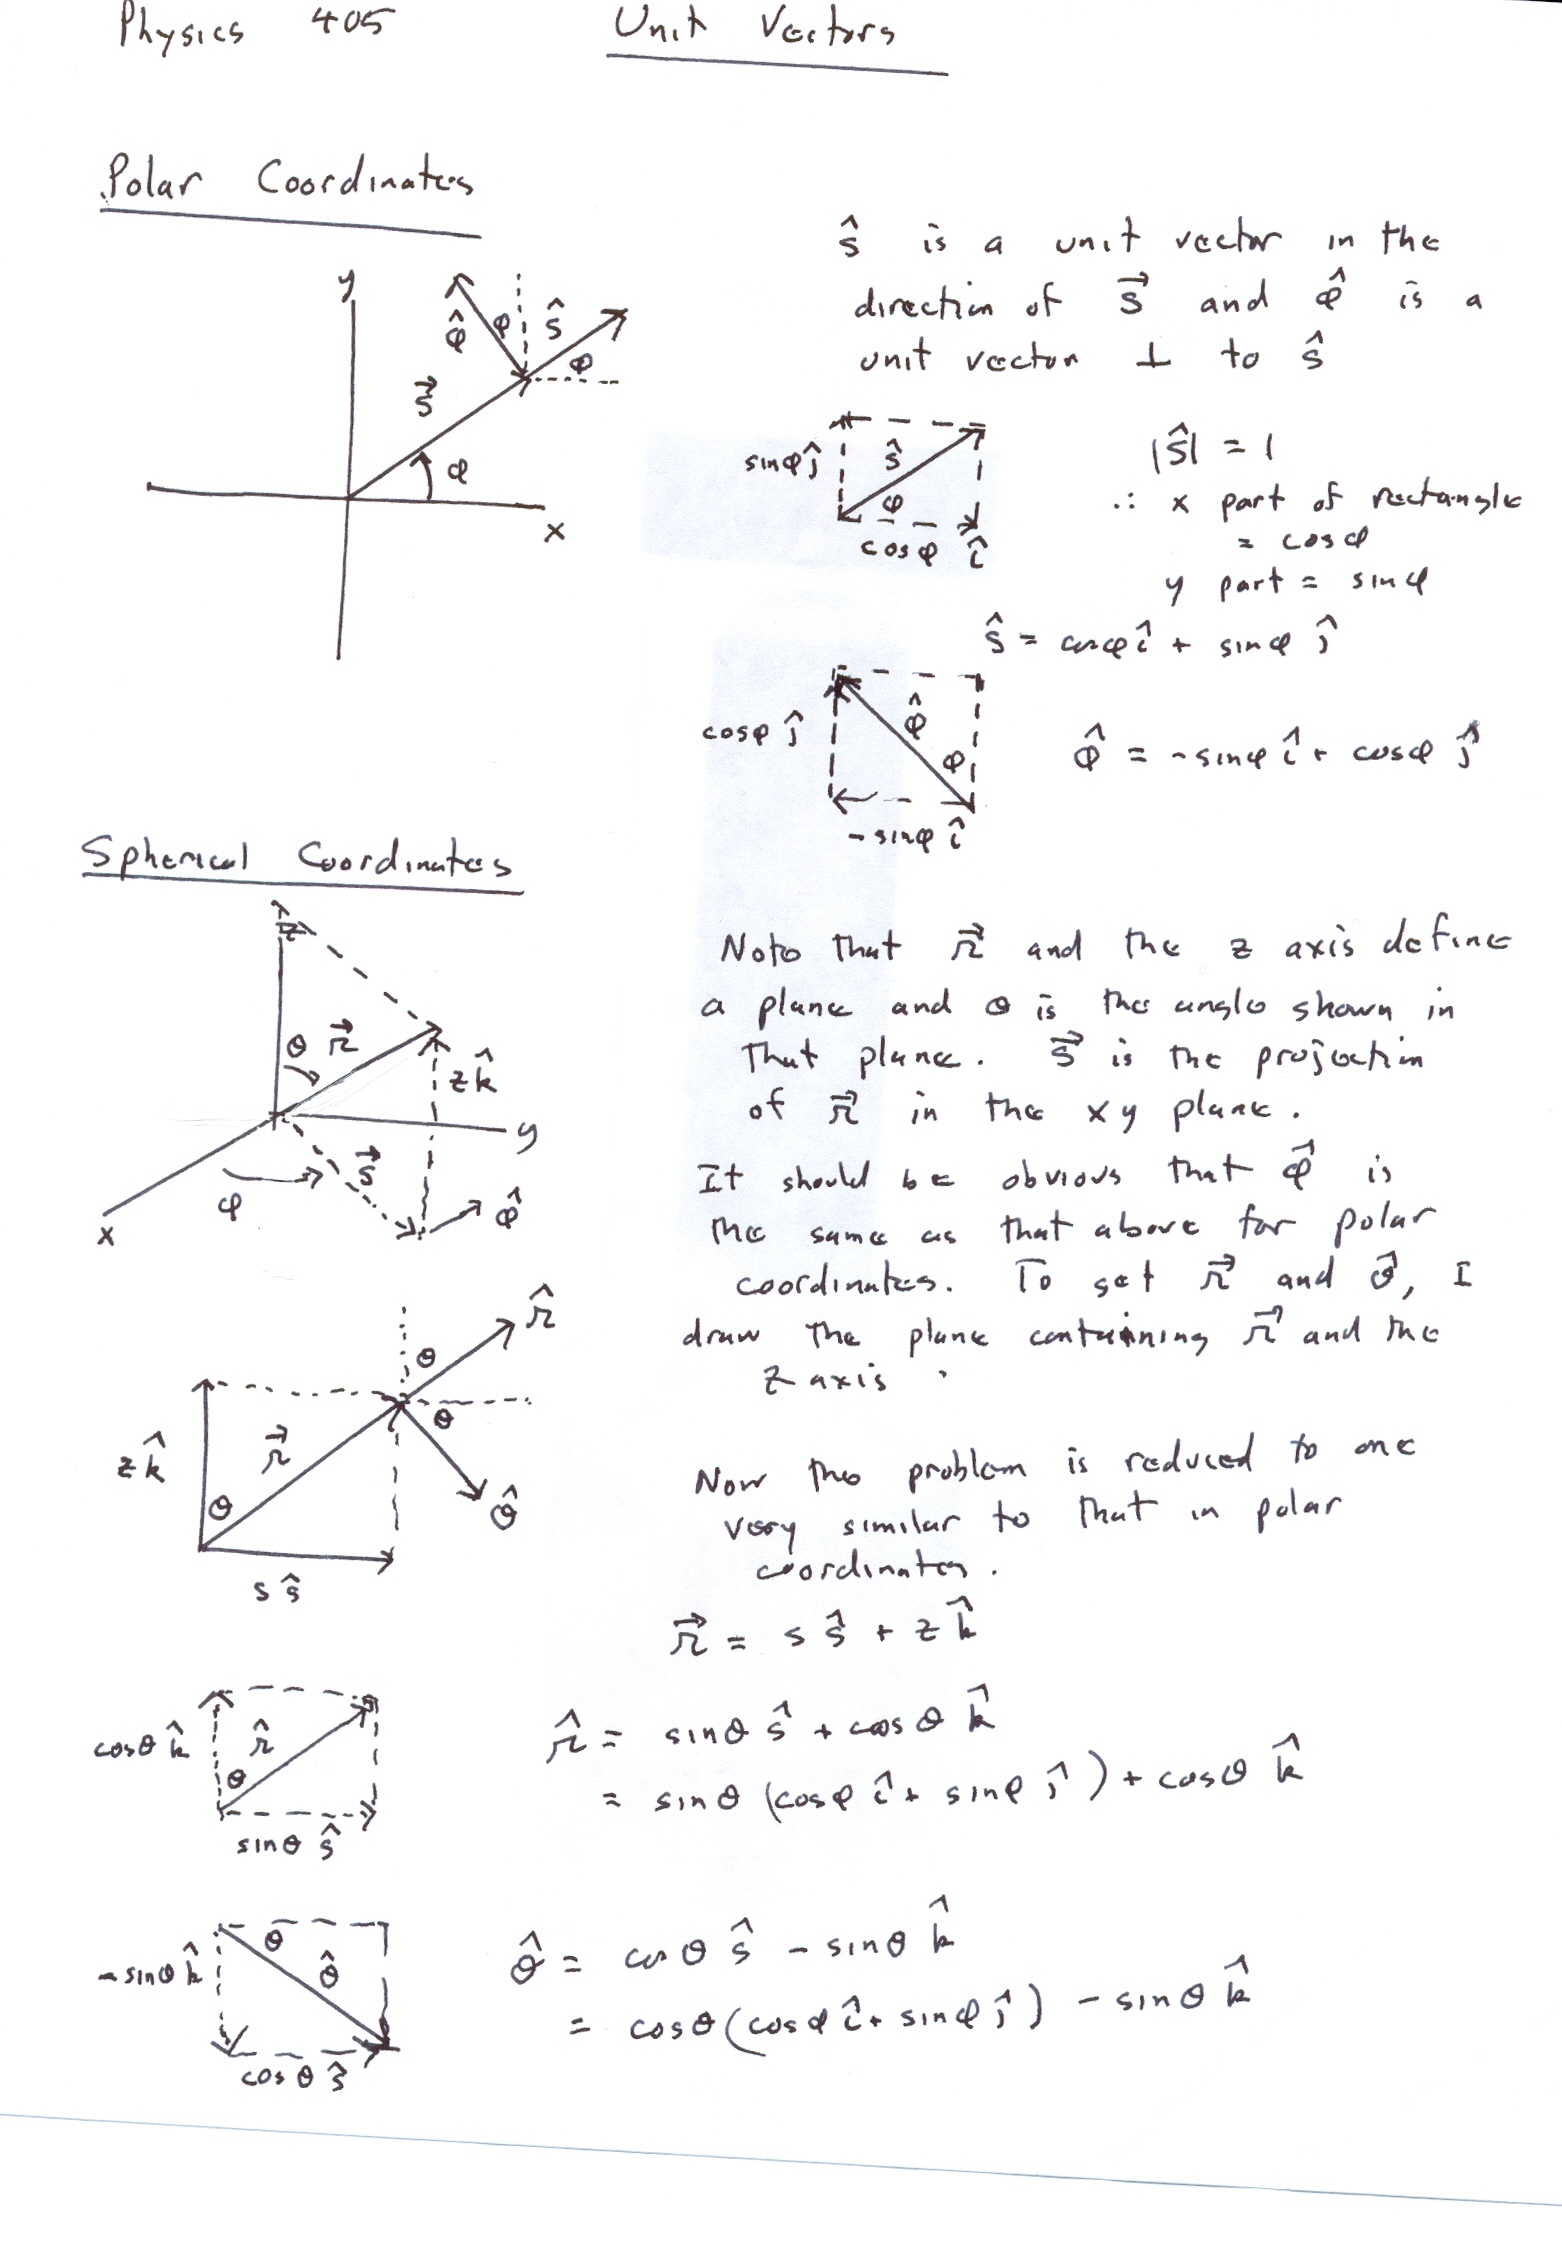 Physics 405 Unit Vectors
Polar Coordinates
ŝ is a unit vector in the
direction of s⃗ and φ̂ is a
unit vector ⊥ to ŝ
y
φ̂ φ ŝ
φ
s⃗
φ
x
sinφ ĵ ŝ
φ
cosφ î
|ŝ| = 1
∴ x part of rectangle
= cosφ
y part = sinφ
ŝ = cosφ î + sinφ ĵ
cosφ ĵ φ̂
φ
-sinφ î
φ̂ = -sinφ î + cosφ ĵ
Spherical Coordinates
z
θ r⃗
z k̂
y
s⃗
φ φ̂
x
Note that r⃗ and the z axis define
a plane and θ is the angle shown in
that plane. s⃗ is the projection
of r⃗ in the xy plane.
It should be obvious that φ⃗ is
the same as that above for polar
coordinates. To get r⃗ and θ⃗, I
draw the plane containing r⃗ and the
z axis.
r̂
θ
θ
z k̂ r⃗
θ θ̂
s ŝ
Now the problem is reduced to one
very similar to that in polar
coordinates.
r⃗ = s ŝ + z k̂
cosθ k̂ r̂
θ
sinθ ŝ
r̂ = sinθ ŝ + cosθ k̂
= sinθ (cosφ î + sinφ ĵ) + cosθ k̂
θ
-sinθ k̂ θ̂
cosθ ŝ
θ̂ = cosθ ŝ - sinθ k̂
= cosθ (cosφ î + sinφ ĵ) - sinθ k̂